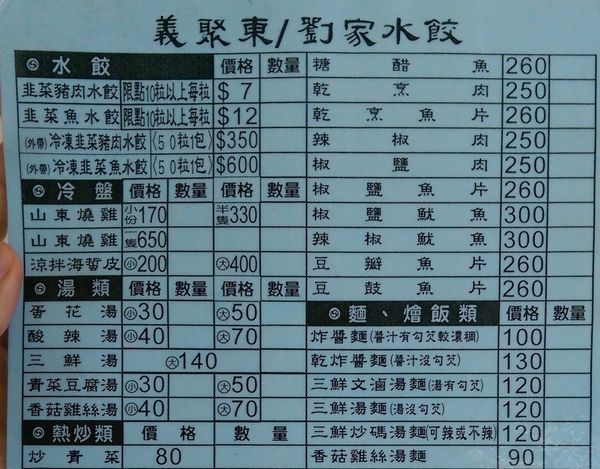 義聚東/劉家水餃
水餃 價格 數量
韭菜豬肉水餃 限點10粒以上每粒 $7
韭菜魚水餃 限點10粒以上每粒 $12
(外帶)冷凍韭菜豬肉水餃(50粒1包) $350
(外帶)冷凍韭菜魚水餃(50粒1包) $600
冷盤 價格 數量 價格 數量
山東燒雞 小份170 半隻330
山東燒雞 一隻650
涼拌海蜇皮 小200 大400
湯類 價格 數量 價格 數量
蛋花湯 小30 大50
酸辣湯 小40 大70
三鮮湯 大140
青菜豆腐湯 小30 大50
香菇雞絲湯 小40 大70
熱炒類 價格 數量
炒青菜 80
糖醋魚 260
乾烹肉 250
乾烹魚片 260
辣椒肉 250
椒鹽肉 250
椒鹽魚片 260
椒鹽魷魚 300
辣椒魷魚 300
豆瓣魚片 260
豆鼓魚片 260
麵、燴飯類 價格 數量
炸醬麵(醬汁有勾芡較濃稠) 100
乾炸醬麵(醬汁沒勾芡) 130
三鮮文滷湯麵(湯有勾芡) 120
三鮮湯麵(湯沒勾芡) 120
三鮮炒碼湯麵(可辣或不辣) 120
香菇雞絲湯麵 90